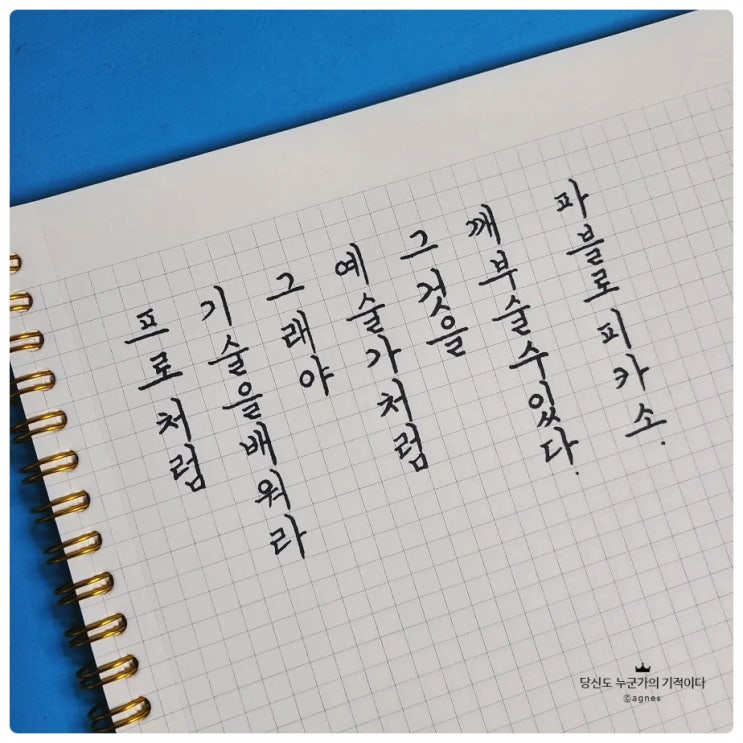 프로처럼
기술을배워라
그래야
예술가처럼
그것을
깨부술수있다.
파블로피카소.
당신도 누군가의 기적이다
©agnes